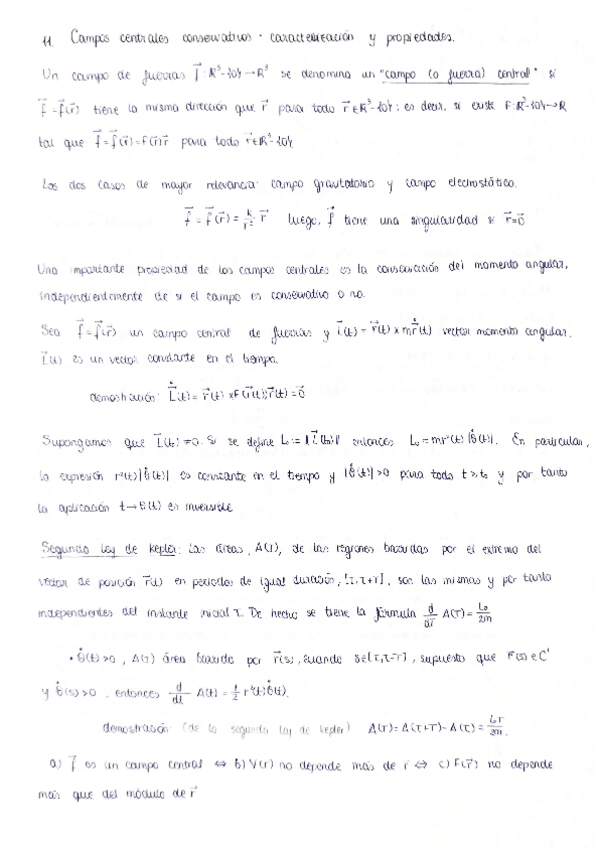 11. Campos centrales conservativos · caracterización y propiedades.
Un campo de fuerzas f⃗: R³-{0} → R³ se denomina un "campo (o fuerza) central" si
f⃗ = f⃗(r⃗) tiene la misma dirección que r⃗ para todo r⃗ ∈ R³-{0}; es decir, si existe F: R³-{0} → R
tal que f⃗ = f⃗(r⃗) = F(r⃗) r⃗ para todo r⃗ ∈ R³-{0}
Los dos casos de mayor relevancia: campo gravitatorio y campo electrostático.
f⃗ = f⃗(r⃗) = k/r³ · r⃗ luego, f⃗ tiene una singularidad si r⃗=0⃗
Una importante propiedad de los campos centrales es la conservación del momento angular,
independientemente de si el campo es conservativo o no.
Sea f⃗ = f⃗(r⃗) un campo central de fuerzas y L⃗(t) = r⃗(t) × m ṙ⃗(t) vector momento angular.
L⃗(t) es un vector constante en el tiempo.
demostración: L⃗̇(t) = r⃗(t) × F(r⃗(t)) r⃗(t) = 0⃗
Supongamos que L⃗(t₀) ≠ 0. Si se define L₀ := |L⃗(t₀)| entonces L₀ = m r²(t) |θ̇(t)|. En particular,
la expresión r²(t)|θ̇(t)| es constante en el tiempo y |θ̇(t)| > 0 para todo t ≥ t₀ y por tanto
la aplicación t → θ(t) es inversible
Segunda ley de kepler: Las áreas, A(T), de las regiones barridas por el extremo del
vector de posición r⃗(t) en periodos de igual duración, [τ, τ+T], son las mismas y por tanto
independientes del instante inicial τ. De hecho se tiene la fórmula d/dT A(T) = L₀/2m
· θ̇(t) > 0, A(t) área barrida por r⃗(s), cuando s∈[τ, τ+T], supuesto que r⃗(s) ∈ C¹
y θ̇(s) > 0, entonces d/dt A(t) = 1/2 r²(t) θ̇(t).
demostración (de la segunda ley de kepler) A(T) = A(τ+T) - A(τ) = L₀T/2m.
a) f⃗ es un campo central ⇔ b) V(r) no depende más de r ⇔ c) F(r⃗) no depende
más que del módulo de r⃗